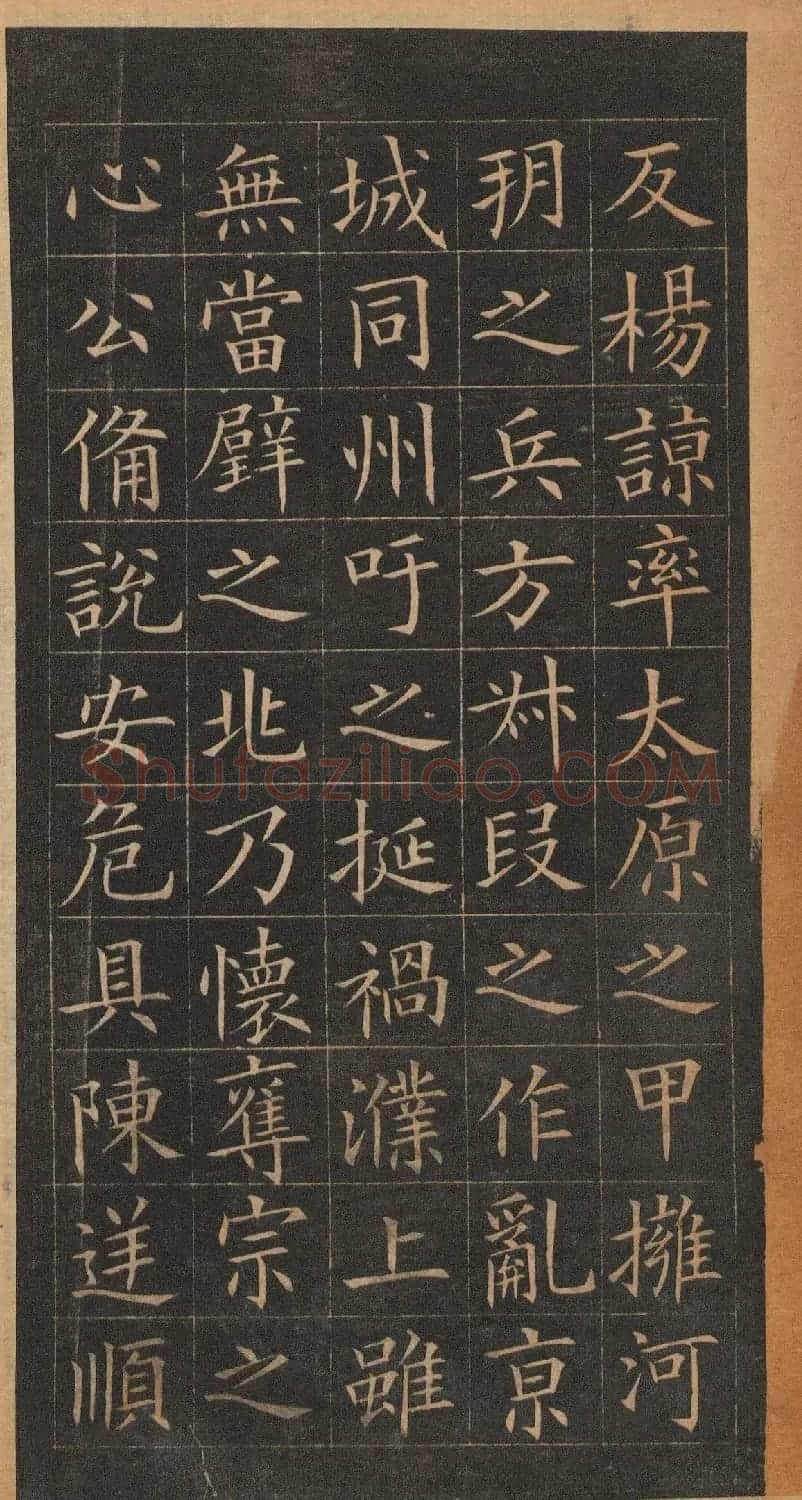 反楊諒率太原之甲擁河
朔之兵方叔段之作亂亰
城同州吁之挻禍濮上雖
無當璧之北乃懷奪宗之
心公備說安危具陳逆順
Shufaziliao.COM